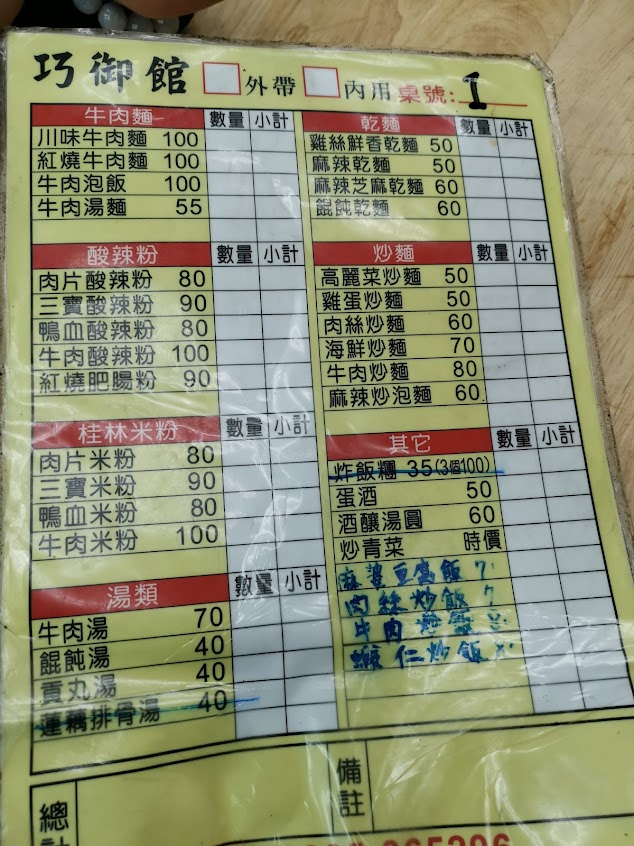 巧御館 外帶 內用 桌號:1
牛肉麵 數量 小計
川味牛肉麵 100
紅燒牛肉麵 100
牛肉泡飯 100
牛肉湯麵 55
酸辣粉 數量 小計
肉片酸辣粉 80
三寶酸辣粉 90
鴨血酸辣粉 80
牛肉酸辣粉 100
紅燒肥腸粉 90
桂林米粉 數量 小計
肉片米粉 80
三寶米粉 90
鴨血米粉 80
牛肉米粉 100
湯類 數量 小計
牛肉湯 70
餛飩湯 40
貢丸湯 40
蓮藕排骨湯 40
乾麵 數量 小計
雞絲鮮香乾麵 50
麻辣乾麵 50
麻辣芝麻乾麵 60
餛飩乾麵 60
炒麵 數量 小計
高麗菜炒麵 50
雞蛋炒麵 50
肉絲炒麵 60
海鮮炒麵 70
牛肉炒麵 80
麻辣炒泡麵 60
其它 數量 小計
炸飯糰 35(3個100)
蛋酒 50
酒釀湯圓 60
炒青菜 時價
麻婆豆腐飯
肉絲炒飯
牛肉炒飯
蝦仁炒飯
總計
備註